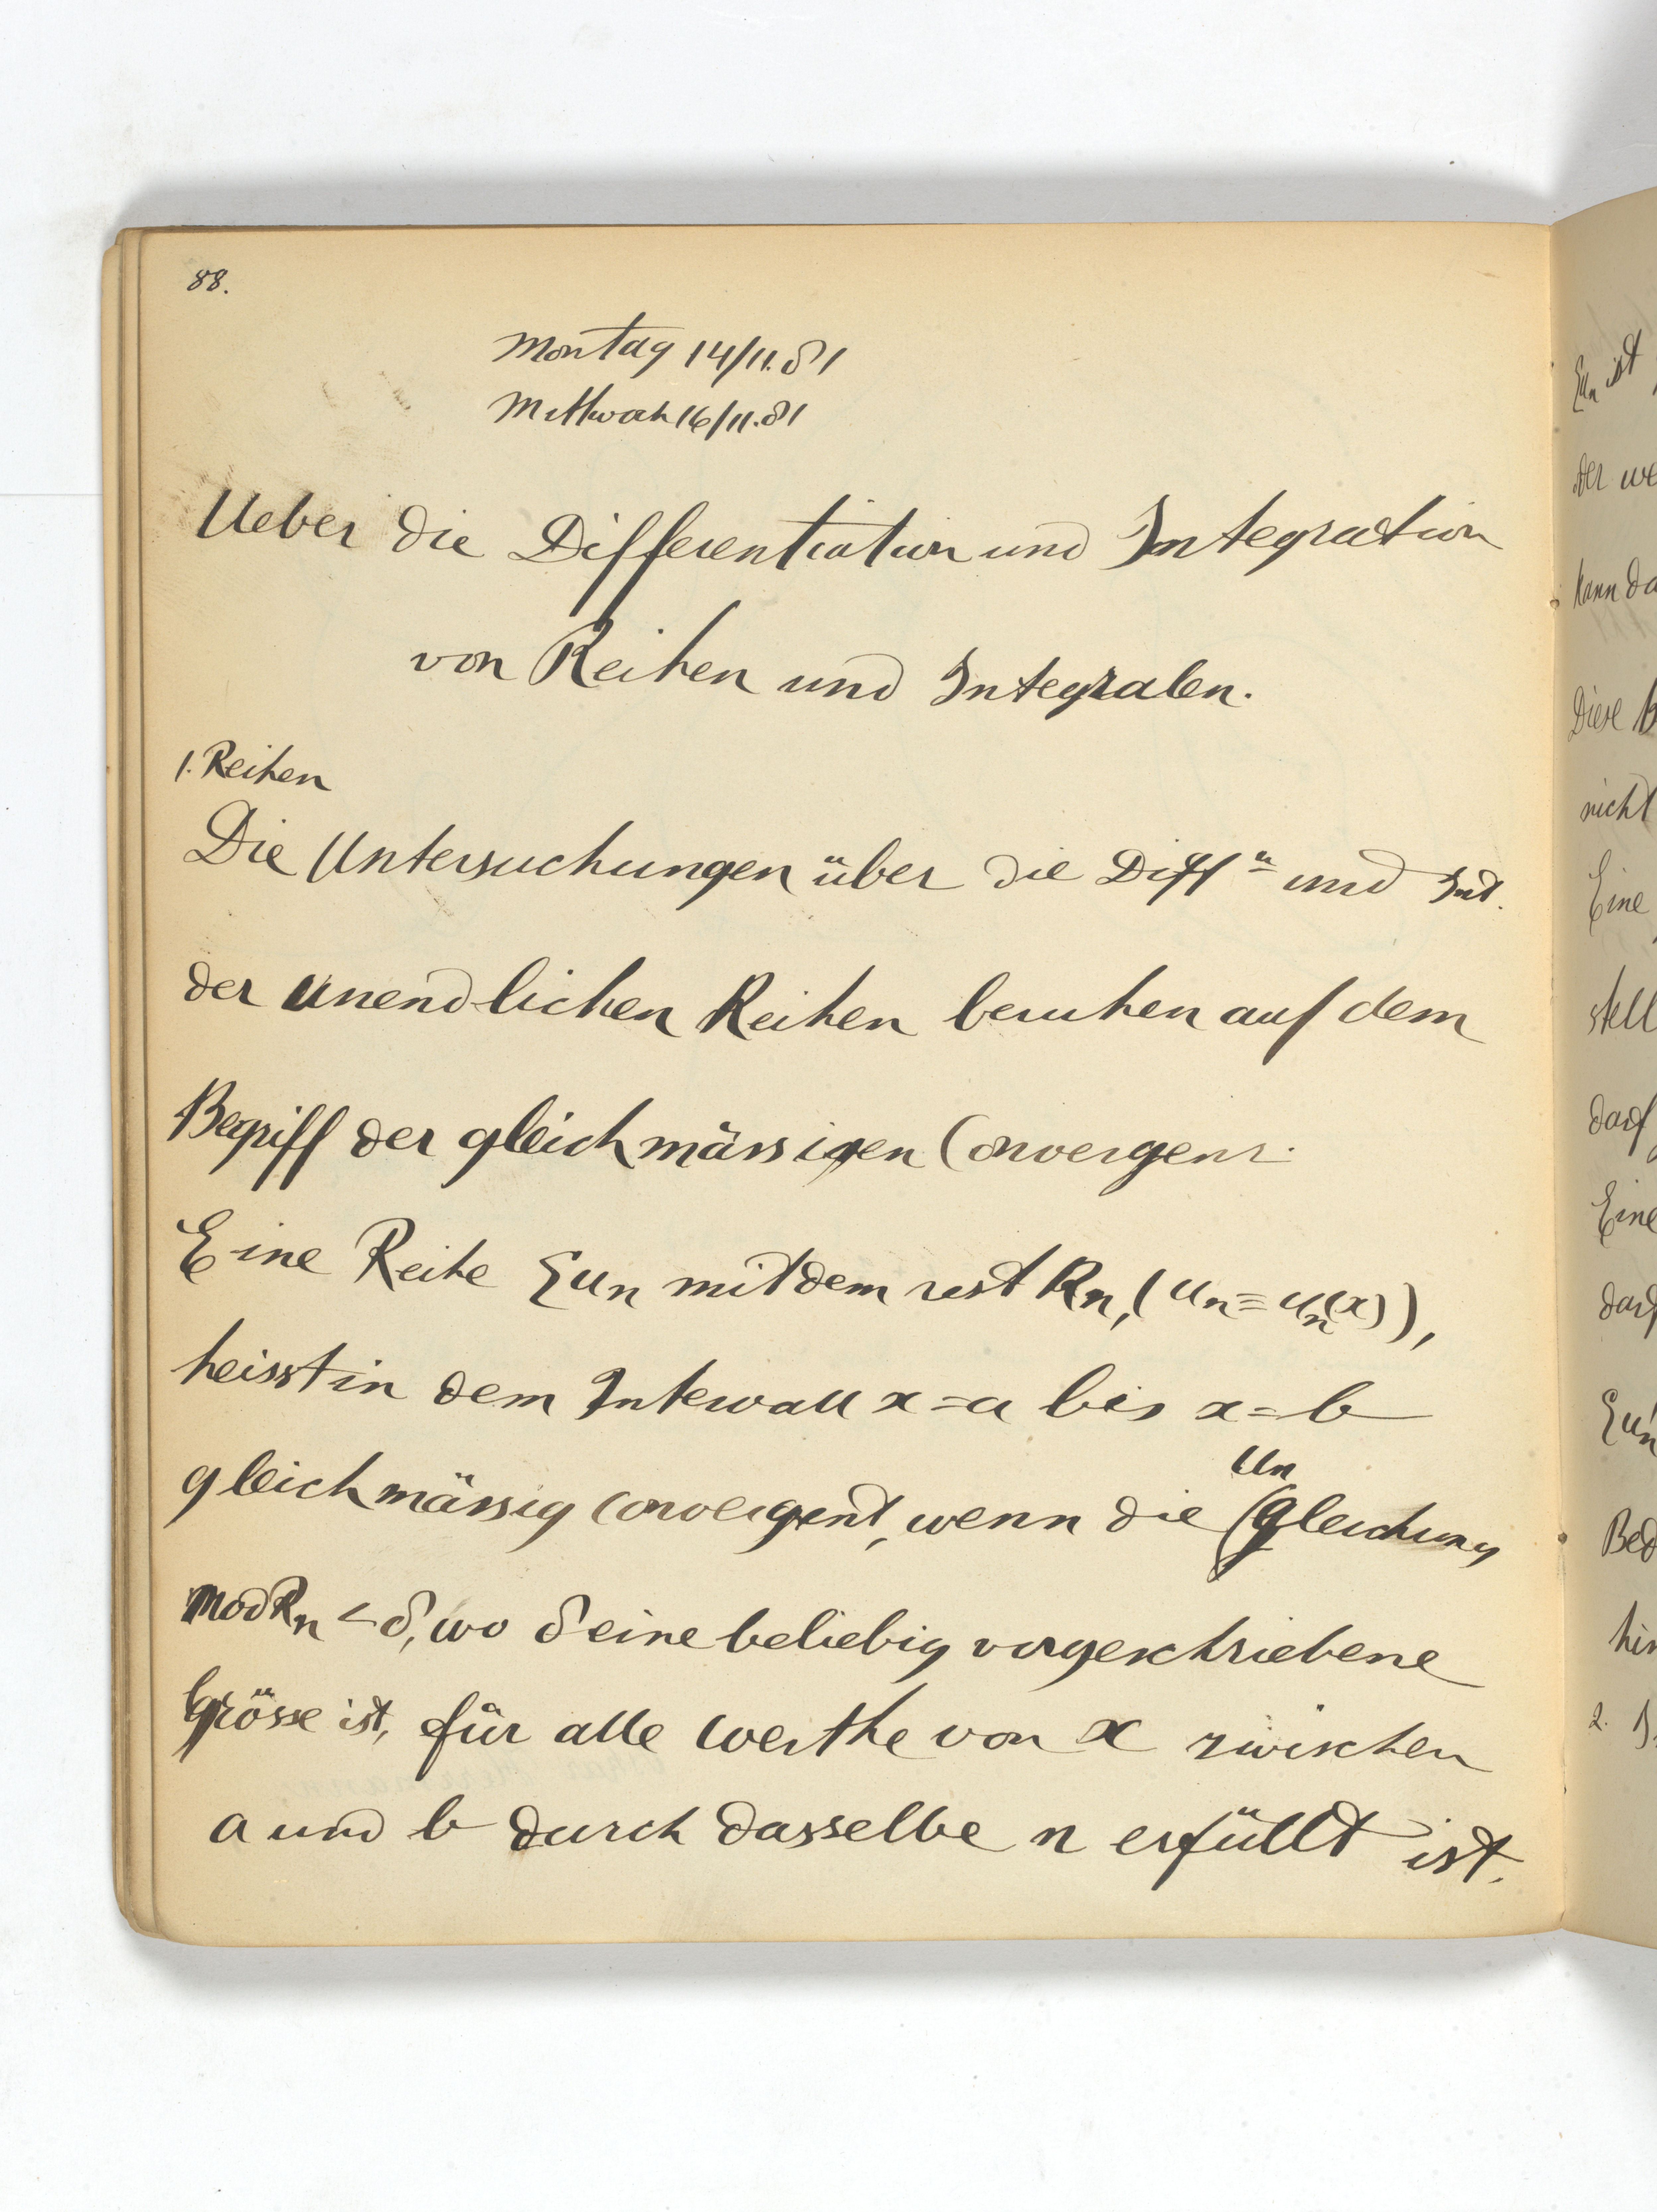 88.
Montag 14/11.81
Mittwoch 16/11.81
Ueber die Differentiation und Integration
von Reihen und Integralen.
1. Reihen
Die Untersuchungen über die Diffn und Int.
der unendlichen Reihen beruhen auf dem
Begriff der gleichmässigen Convergenz.
Eine Reihe Σun mit dem rest Rn, (un = un(x)),
heisst in dem Intervall x = a bis x = b
gleichmässig convergent, wenn die Ungleichung
mod Rn < δ, wo δ eine beliebig vorgeschriebene
Grösse ist, für alle Werthe von x zwischen
a und b durch dasselbe n erfüllt ist.
Σun ist
der we
kann da
Diese B
nicht
Eine
stell
darf
Eine
darf
Σu'n
Bed
hin
2. I